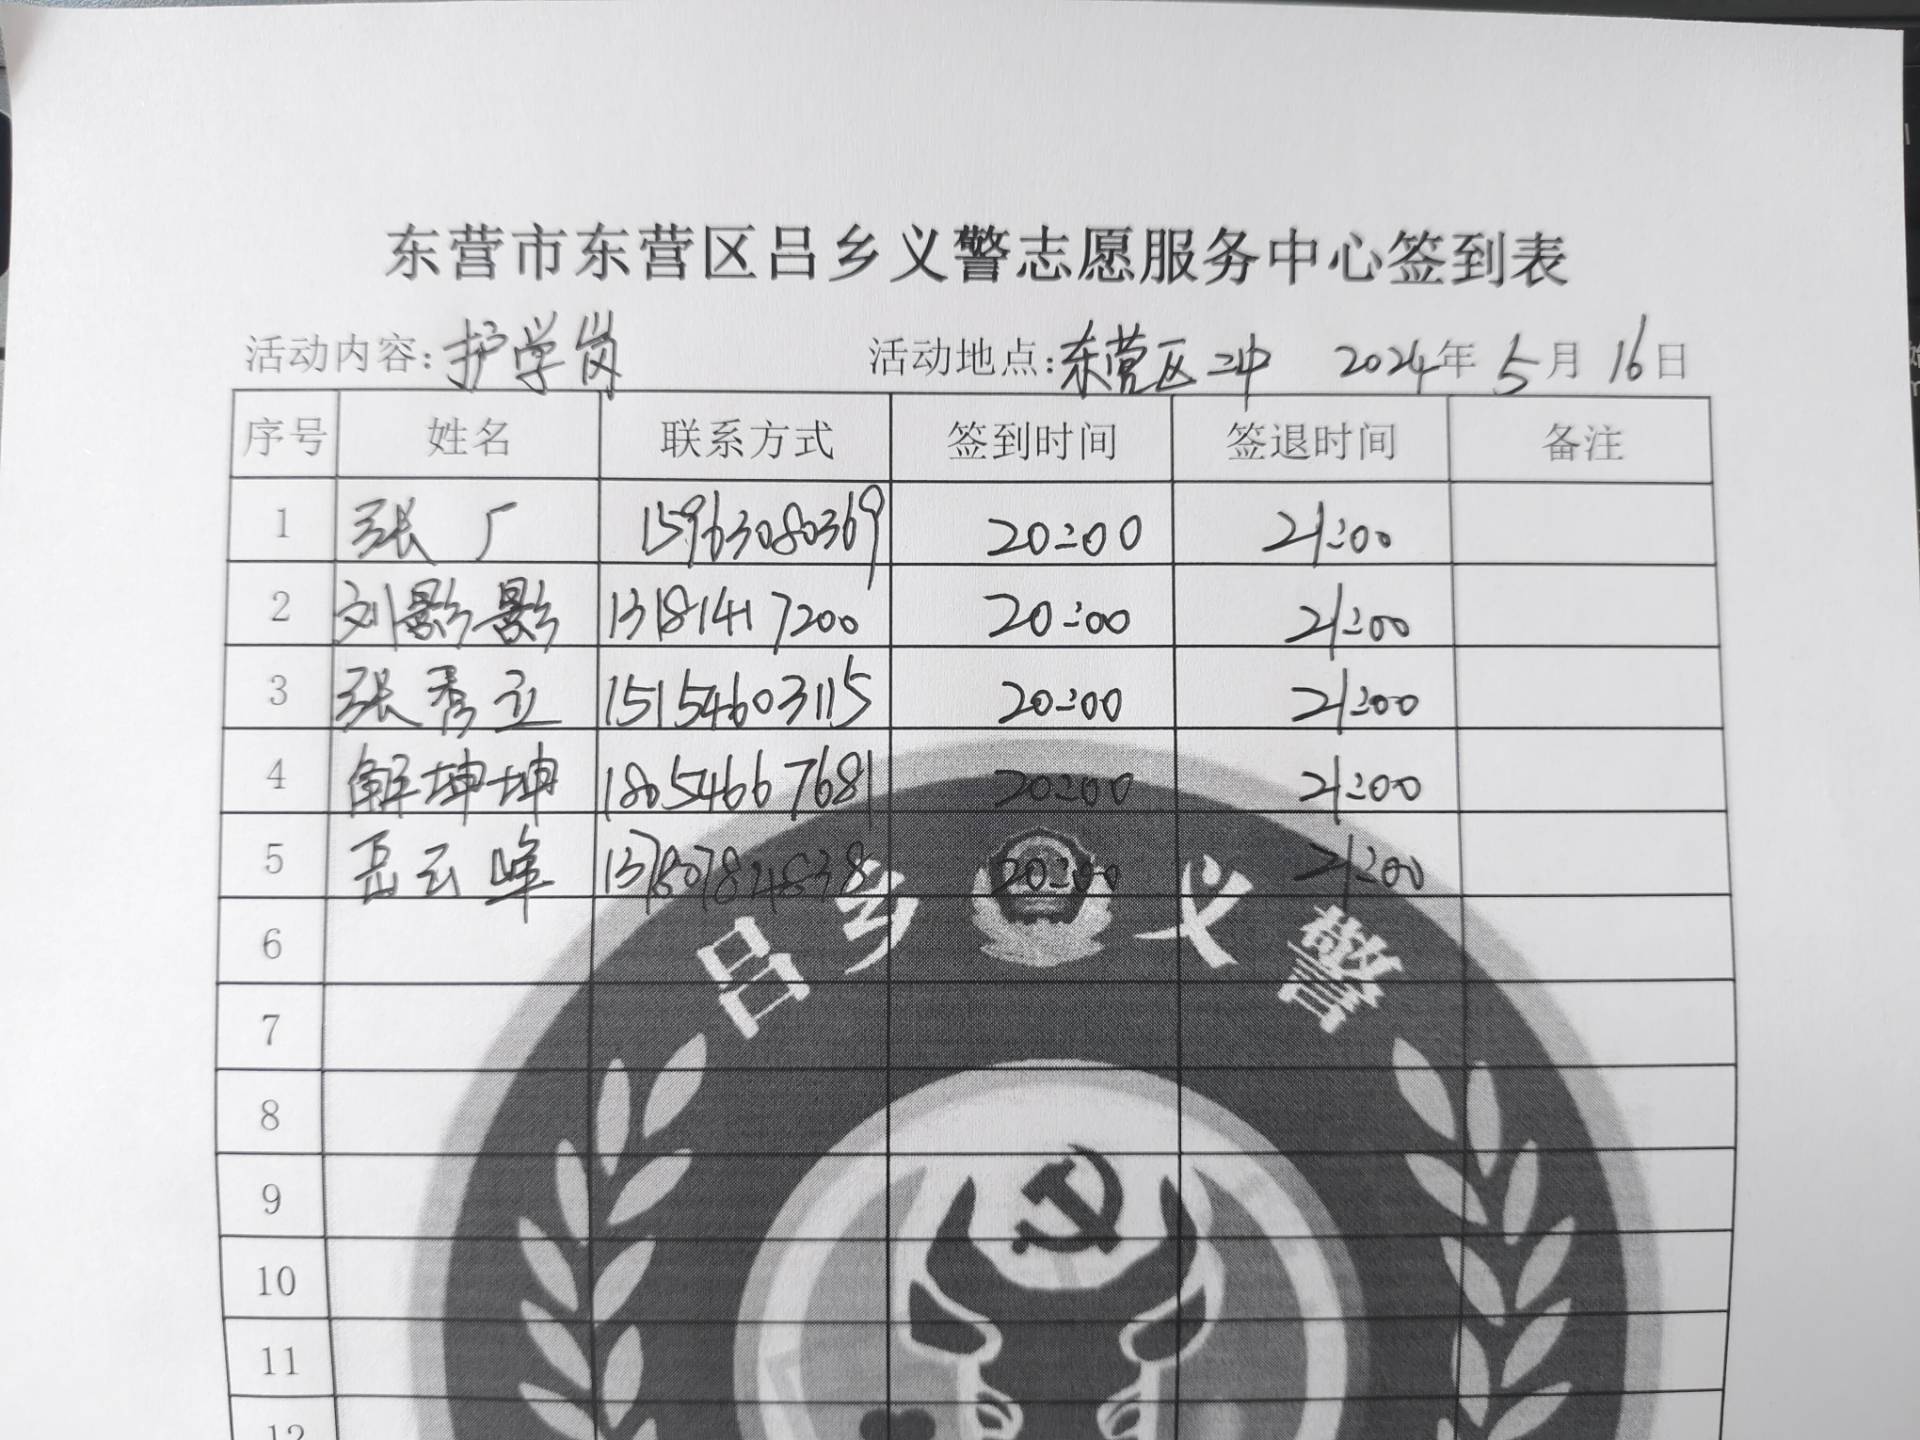 东营市东营区吕乡义警志愿服务中心签到表
活动内容:护学岗 活动地点:东营区二中 2024年5月16日
序号 姓名 联系方式 签到时间 签退时间 备注
1 张广 15963080369 20:00 21:00
2 刘影影 13181417200 20:00 21:00
3 张秀立 15154603115 20:00 21:00
4 解坤坤 18054667681 20:00 21:00
5 岳云峰 13780784838 20:00 21:00
吕乡义警
6
7
8
9
10
11
12